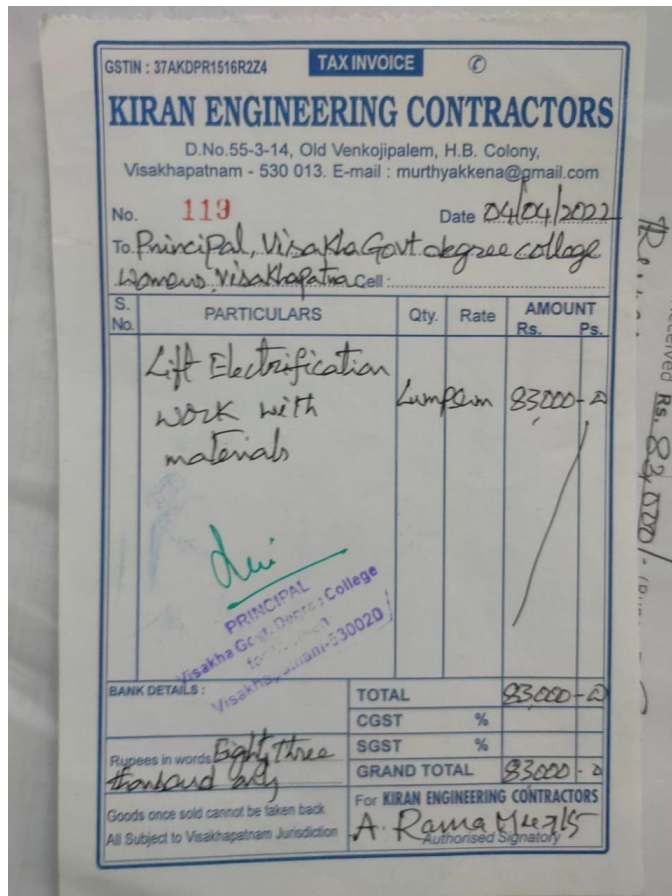 GSTIN : 37AKDPR1516R2Z4 TAX INVOICE
KIRAN ENGINEERING CONTRACTORS
D.No.55-3-14, Old Venkojipalem, H.B. Colony,
Visakhapatnam - 530 013. E-mail : murthyakkena@gmail.com
No. 119 Date 04/04/2022
To Principal, Visakha Govt. degree college
womens, Visakhapatna Cell :
S. No. PARTICULARS Qty. Rate AMOUNT Rs. Ps.
Lift Electrification
work with Lumpsum 83,000-0
materials
PRINCIPAL
Visakha Govt. Degree College
Visakhapatnam-530020
BANK DETAILS :
TOTAL 83,000-0
CGST %
SGST %
Rupees in words Eighty Three
thousand only
GRAND TOTAL 83000-0
Goods once sold cannot be taken back
All Subject to Visakhapatnam Jurisdiction
For KIRAN ENGINEERING CONTRACTORS
A. Rama
Authorised Signatory
Rs. 83,000/-